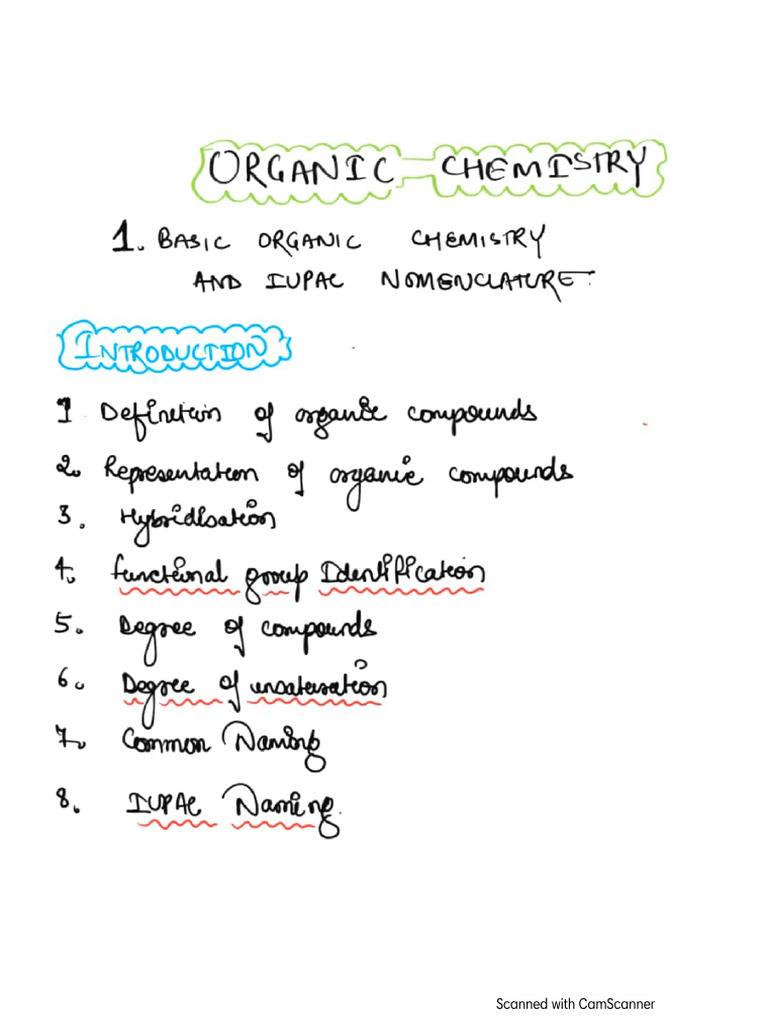 ORGANIC CHEMISTRY
1. BASIC ORGANIC CHEMISTRY
AND IUPAC NOMENCLATURE:
INTRODUCTION
1 Definition of organic compounds
2. Representation of organic compounds
3. Hybridisation
4. functional group Identification
5. Degree of compounds
6. Degree of unsaturation
7. Common Naming
8. IUPAC Naming.
Scanned with CamScanner